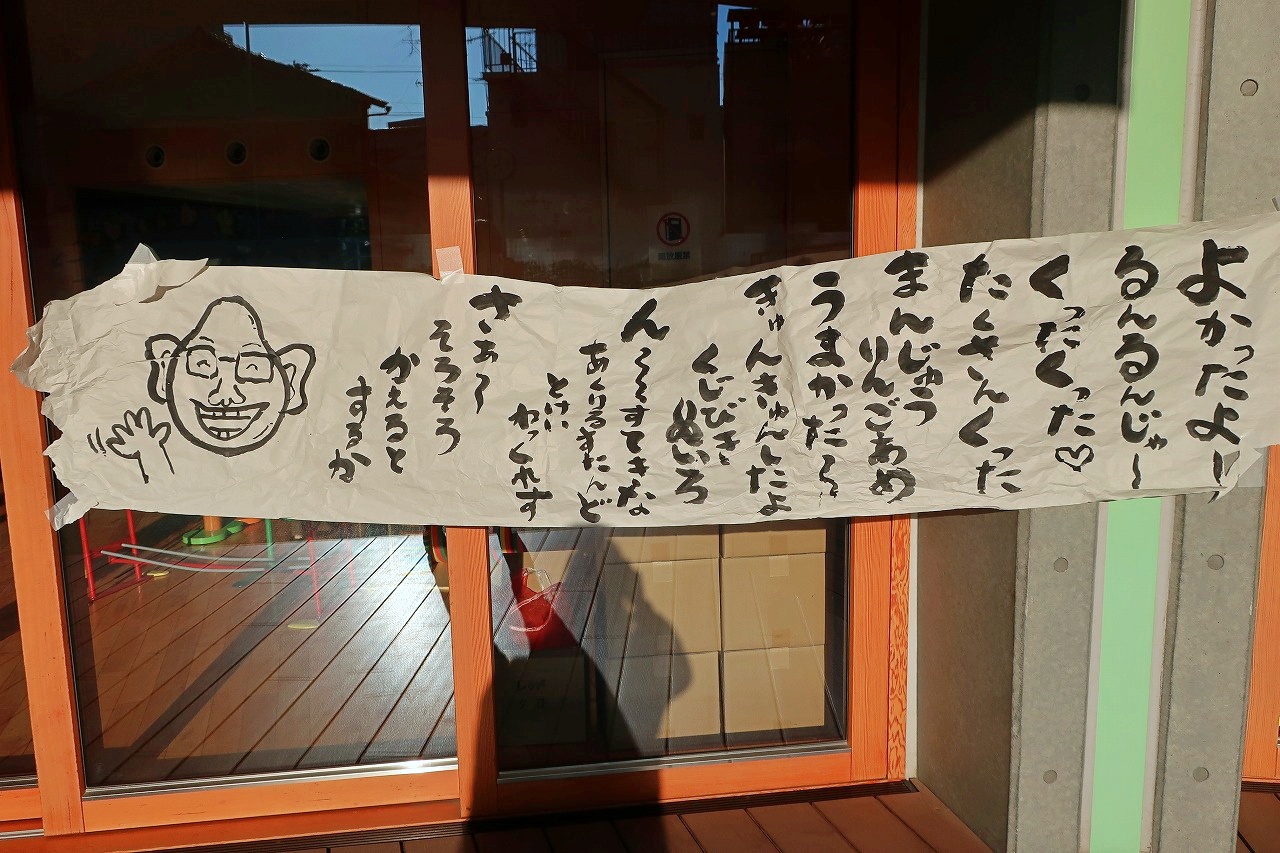 よかったよー
るんるんじゃー
くったくった♡
たくさんくった
まんじゅう
りんごあめ
うまかった〜
きゅんきゅんしたよ
くじびき
ぬいろ
ん〜〜すてきな
あくりるすたんど
とけい
わっくれす
さぁ〜
そろそろ
かえると
するか